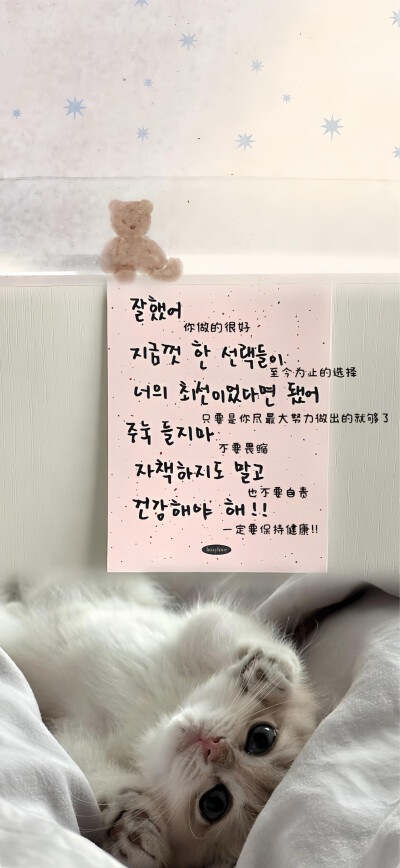 잘했어
你做的很好
지금껏 한 선택들이
至今为止的选择
너의 최선이었다면 됐어
只要是你尽最大努力做出的就够了
주눅 들지마
不要畏缩
자책하지도 말고
也不要自责
건강해야 해!!
一定要保持健康!!